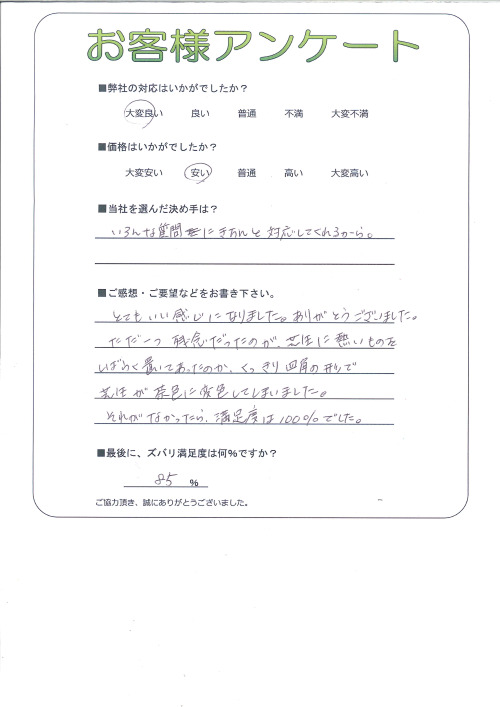 お客様アンケート
■弊社の対応はいかがでしたか？
大変良い 良い 普通 不満 大変不満
■価格はいかがでしたか？
大変安い 安い 普通 高い 大変高い
■当社を選んだ決め手は？
いろんな質問にきちんと対応してくれるから。
■ご感想・ご要望などをお書き下さい。
とてもいい感じになりました。ありがとうございました。
ただ一つ残念だったのが、芝生に熱いものを
しばらく置いてあったのか、くっきり四角の形で
芝生が茶色に変色してしまいました。
それがなかったら、満足度は100%でした。
■最後に、ズバリ満足度は何％ですか？
85 %
ご協力頂き、誠にありがとうございました。